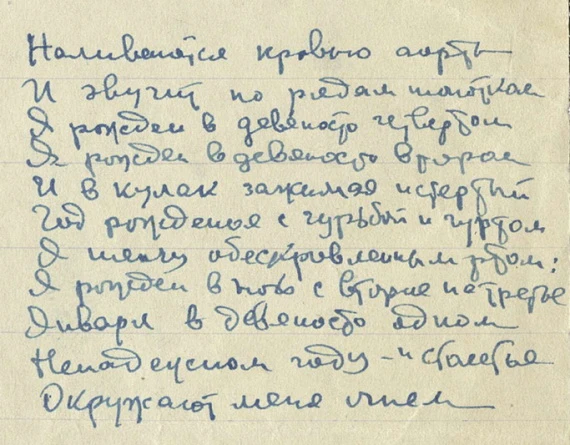 Наливаются кровью аорты
И звучит по рядам шепотком
Я рожден в девяносто четвертом
Я рожден в девяносто втором
И в кулак зажимая истертый
Год рожденья с гурьбой и гуртом
Я шепчу обескровленным ртом:
Я рожден в ночь с второго на третье
Января в девяносто одном
Ненадежном году – и столетья
Окружают меня огнем